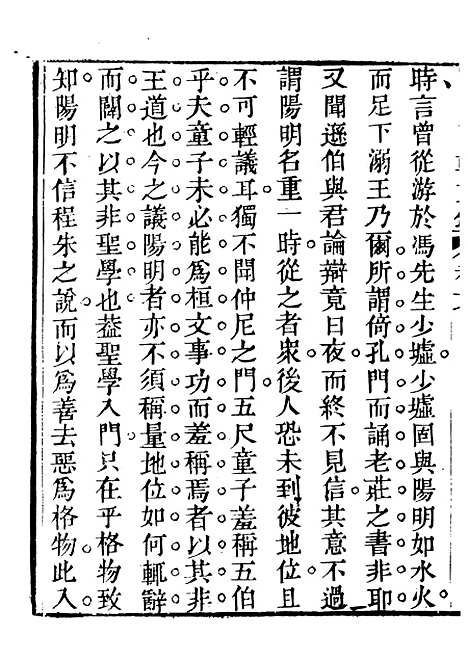 時言曾從游於馮先生少墟少墟固與陽明如水火
而足下溺王乃爾所謂倚孔門而誦老莊之書非耶
又聞遜伯與君論辯竟日夜而終不見信其意不過
謂陽明名重一時從之者衆後人恐未到彼地位且
不可輕議耳獨不聞仲尼之門五尺童子羞稱五伯
乎夫童子未必能爲桓文事功而羞稱焉者以其非
王道也今之議陽明者亦不須稱量地位如何輒辭
而闢之以其非聖學也葢聖學入門只在乎格物致
知陽明不信程朱之說而以爲善去惡爲格物此入